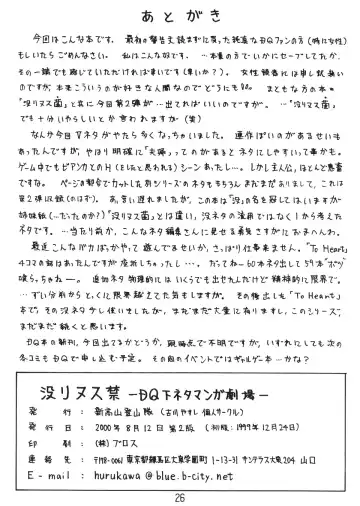 あとがき
今回はこんな本です。最初の警告も読まずに買った純真なDQファンの方(特に女性)
もしいたらごめんなさい。私はこんな好きです。…本業の方でいかにセーブしてたか、
その一端でも感じていただければ幸いです(幸いか?)。女性読者には申し訳ない
のですが、本をこういうのが好きな人間なのでどうにも
「没リヌス菌」と共に今回第2弾が…出ればいいのですが。…「没リヌス菌」
でも十分いやらしいとか言われますが(笑)
なんか今回マネタがやたら多くなっちゃいました。連作ぽいのがあるせいも
あったんですが、やはり明確に「夫婦」ってのがあるとネタにしやすいって事かも。
ゲーム中でもビアンカとのH(をしたと思われる)シーンあったし…。しかし主人公、ほとんど馬鹿
ですな。ページの都合でカットした別シリーズのネタももちろんまだまだありまして、これは
第2弾収録(のはず)。あ、言い遅れましたが、この本は「没」の名を冠してはいますが
姉妹紙(…だったのか?)「没リヌス菌」とは違い、没ネタの流用ではなく1から考えた
ネタです。…当たり前か、こんなネタ編集さんに見せる勇気さすがにおまへんわ。
最近こんなバカばっかやって遊んでるせいか、さっぱり仕事来ません。「To Heart」
4コマの話はあったんですが座折しちゃったし…。だってねー60本ネタ出して59本「ボツ」
喰らっちゃねー。追加ネタ物理的にはいくらでも出せたんだけど精神的に限界で。
…ずい分前からとっくに限界越えてた気もしますが。その後出した「To Heart」
本で、その没ネタ少し使いましたが、まだまだ大量に有りますし、このシリーズ、
まだまだ続くと思います。
DQ本の新刊、今回出てるかどうか、現時点で不明ですが、いずれにしても次の
冬コミもDQで申し込む予定。その間のイベントではギャルゲー本…かな?
没リヌス禁 -DQ下ネタマンガ劇場-
発行:新高山登山隊(古川やすし個人サークル)
発行日:2000年8月12日第2版(初版:1999年12月24日)
印刷:(株)プロス
連絡先:〒178-0061 東京都練馬区大泉学園町1-13-31 サンテラス大泉204 山口
E-mail:hurukawa@blue.b-city.net
26